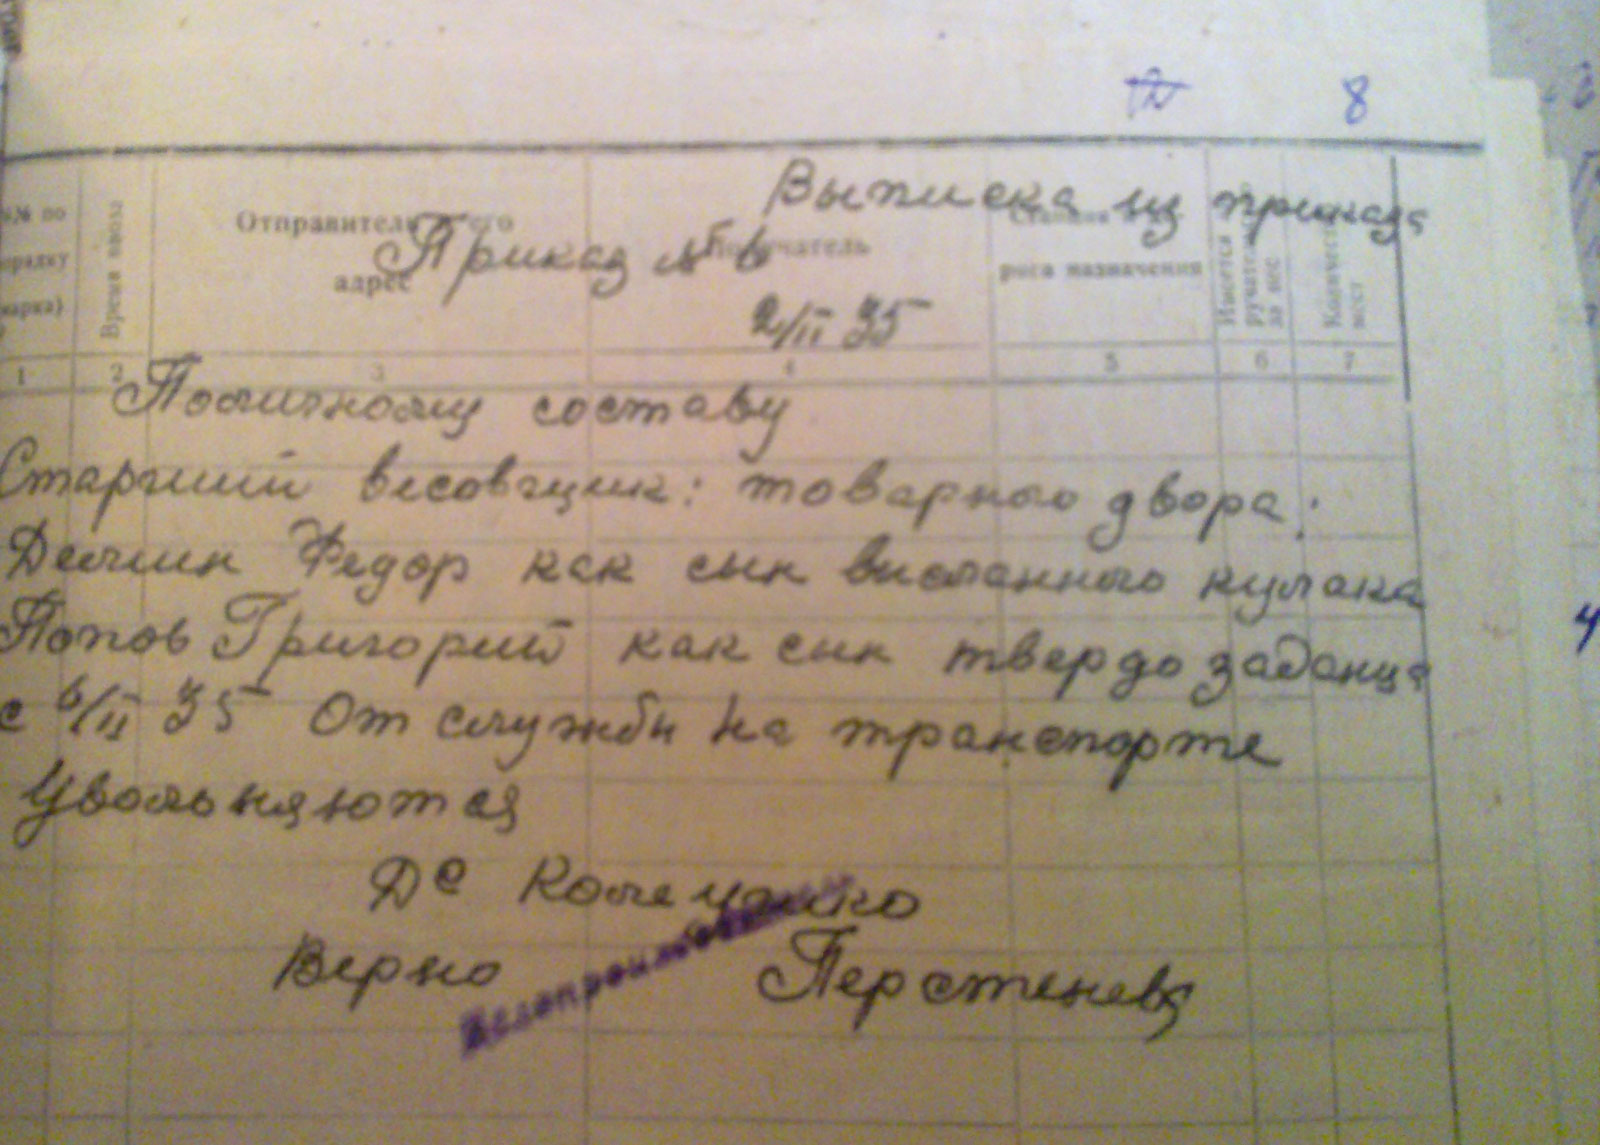 8
Выписка из приказа
№№ по
порядку
(марка)
Время ввоза
Отправитель его
адрес
Получатель
Станция
рога назначения
Имеется
ручател
за вес
Количество
мест
Приказ № 6
2/II 35
1 2 3 4 5 6 7
По личному составу
Старший весовщик: товарного двора:
Демин Федор как сын висланного кулака
Попов Григорий как сын твердо заданца
с 6/II 35 От службы на транспорте
Увольняются
Дс
Верно Перстенева